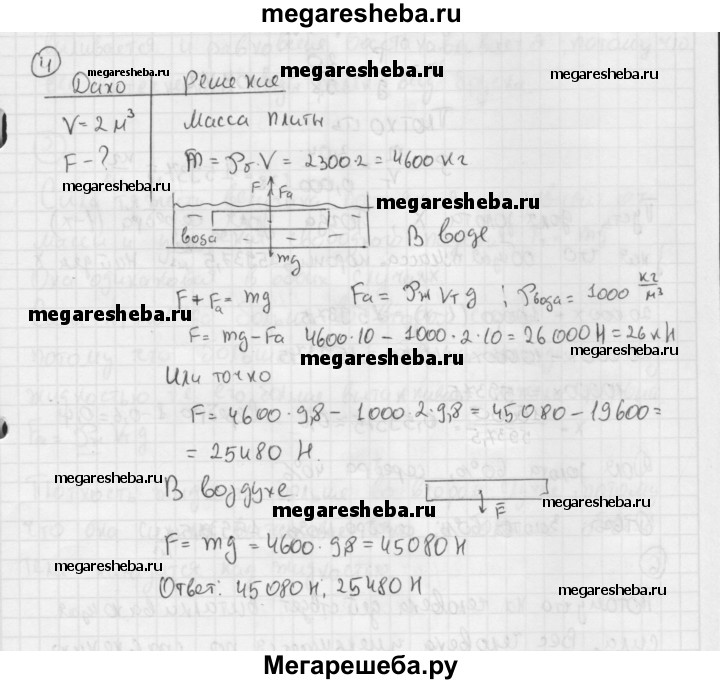 megaresheba.ru
4
Дано Решение
megaresheba.ru megaresheba.ru megaresheba.ru
V=2м³ Масса плиты
F-? m = ρт·V = 2300·2 = 4600 кг
megaresheba.ru
F Fa
megaresheba.ru
вода
В воде
mg
F + Fa = mg Fa = ρж Vт g ; ρвода = 1000 кг/м³
megaresheba.ru
F = mg - Fa 4600·10 - 1000·2·10 = 26 000 Н = 26 кН
megaresheba.ru megaresheba.ru
Или точно
F = 4600·9,8 - 1000·2·9,8 = 45 080 - 19600 =
= 25480 Н.
megaresheba.ru megaresheba.ru
В воздухе
megaresheba.ru megaresheba.ru
F
F = mg = 4600·9,8 = 45080 Н
megaresheba.ru megaresheba.ru megaresheba.ru
Ответ: 45 080 Н, 25480 Н
Мегарешеба.ру